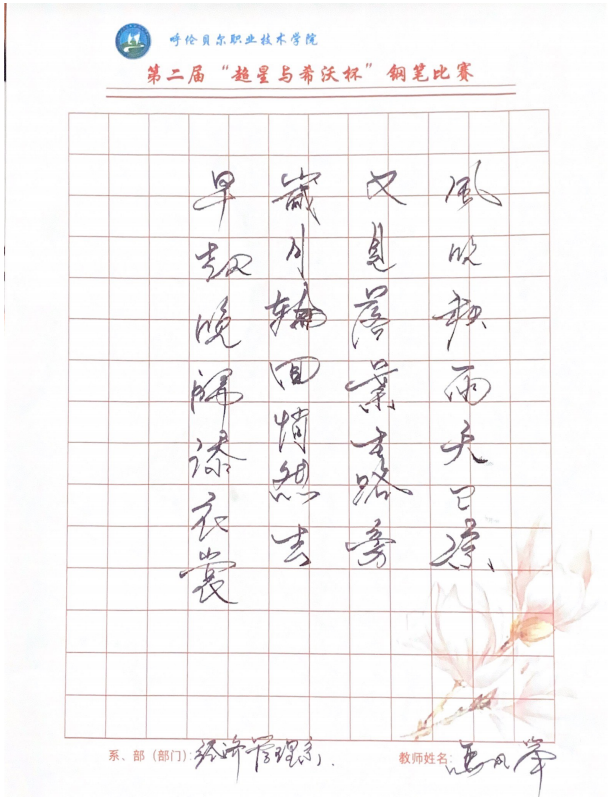 呼伦贝尔职业技术学院
第二届“超星与希沃杯”钢笔比赛
風吹秋雨天已凉
又見落葉路旁
歲月輪回悄然去
早起晚歸添衣裳
系、部（部门）：经济管理系.
教师姓名：